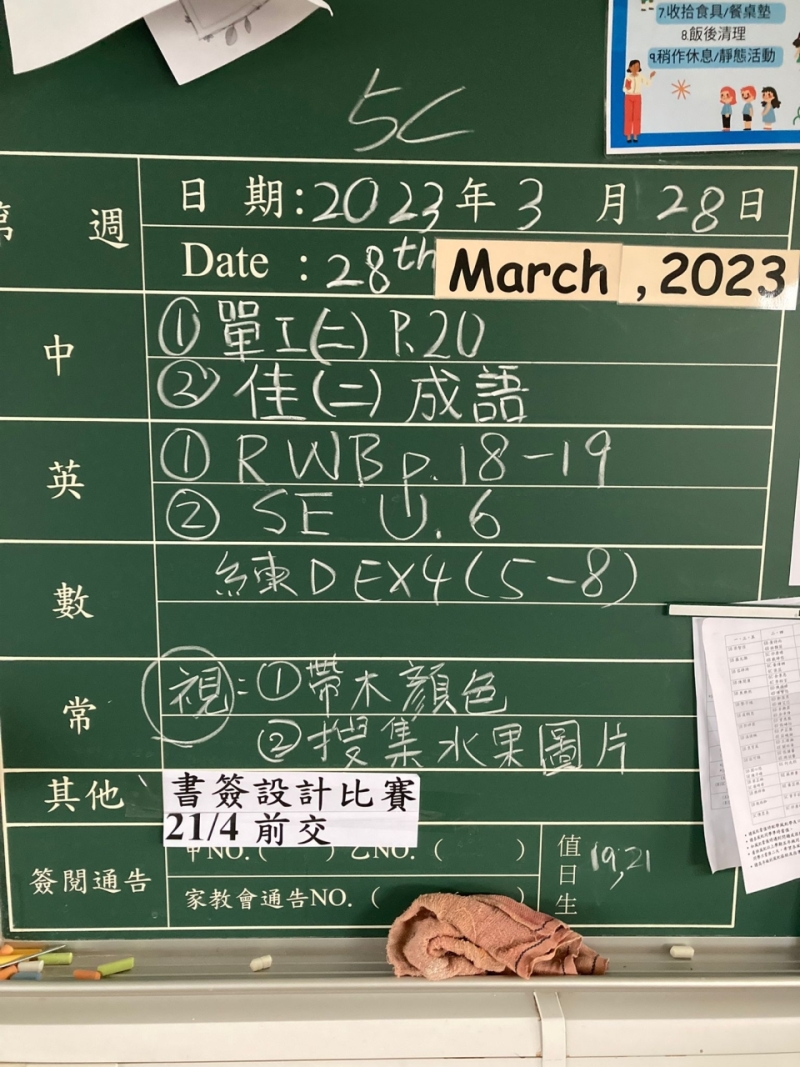 7.收拾食具/餐桌墊
8.飯後清理
9.稍作休息/靜態活動
5C
第 週
日 期:2023年3月28日
Date :28th March ,2023
中
①單工(二) P.20
②佳(二)成語
英
①RWB p.18-19
②SE U.6
數
練D EX4(5-8)
常
視:①帶木顏色
②搜集水果圖片
其他
書簽設計比賽
21/4 前交
簽閱通告
甲NO.( )乙NO.( )
家教會通告NO.( )
值日生
19,21